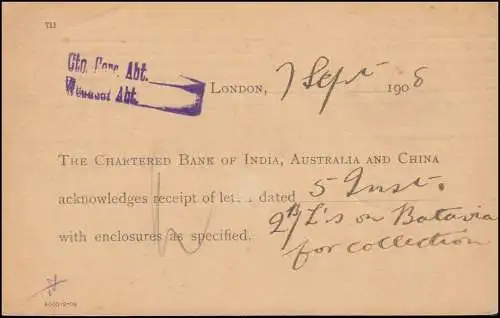 711
Cto. Corr. Abt.
Wechsel Abt.
LONDON, 7 Sept 1908
THE CHARTERED BANK OF INDIA, AUSTRALIA AND CHINA
acknowledges receipt of letter dated 5 Inst.
2 B/L's on Batavia
with enclosures as specified. for collection